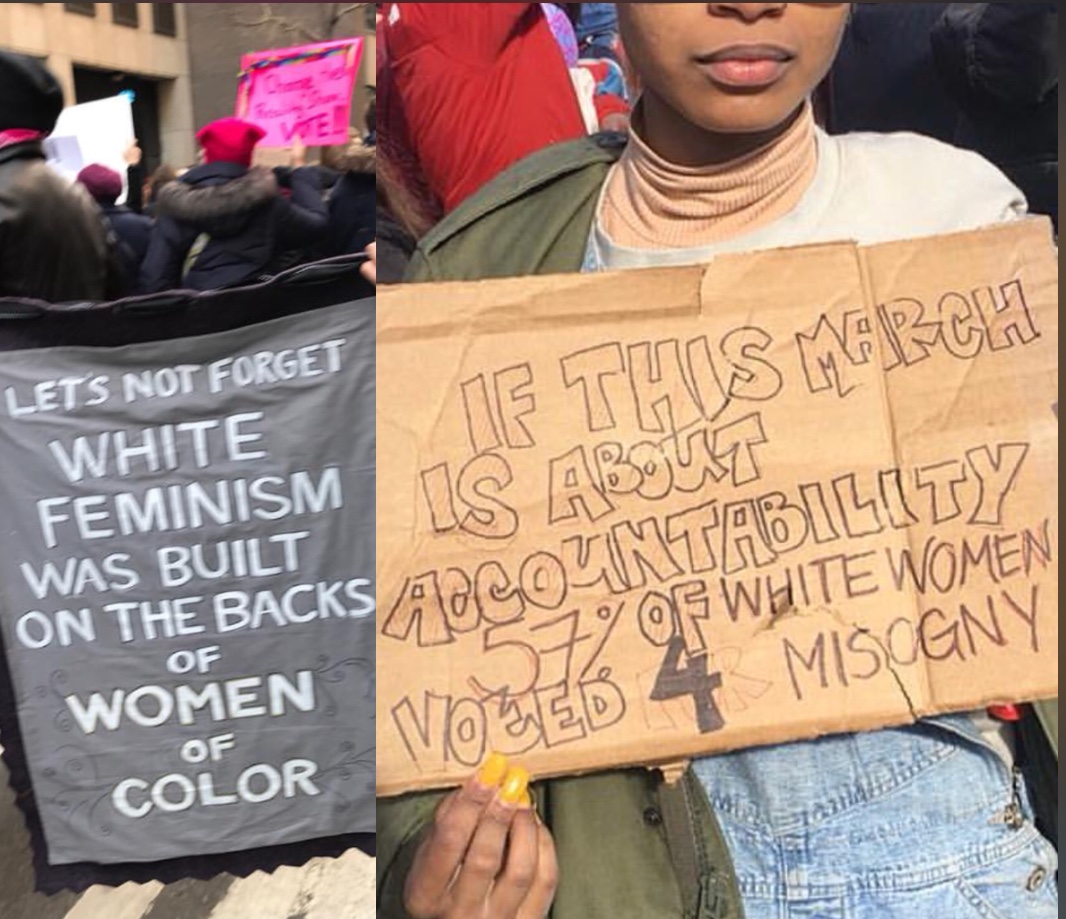 VOTE!
LET'S NOT FORGET
WHITE
FEMINISM
WAS BUILT
ON THE BACKS
OF
WOMEN
OF
COLOR
IF THIS MARCH
IS ABOUT
ACCOUNTABILITY
57% OF WHITE WOMEN
VOTED 4 MISOGNY